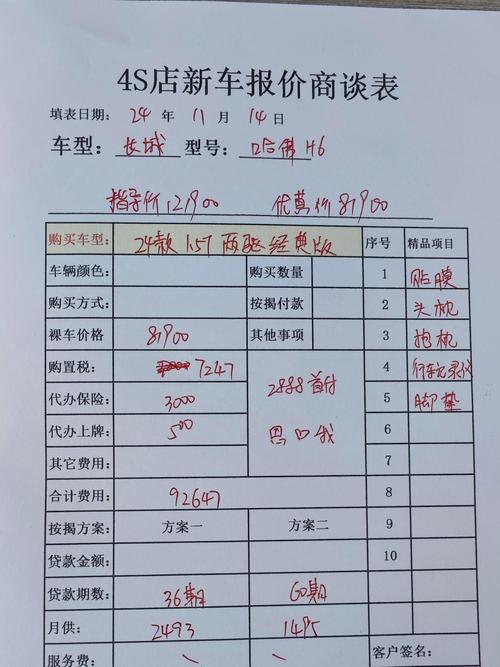 4S店新车报价商谈表
填表日期: 24 年 11 月 14 日
车型: 长城 型号: 哈佛 H6
指导价 121900 优惠价 81900
购买车型: 24款 1.5T 两驱经典版 序号 精品项目
车辆颜色: 购买数量 1 贴膜
购买方式: 按揭付款 2 头枕
裸车价格 81900 其他事项 3 抱枕
购置税: 7247 4 行车记录仪
代办保险: 3000 2888首付 5 脚垫
代办上牌: 500 6
其它费用: 7
合计费用: 92647 8
按揭方案: 方案一 方案二 9
贷款金额: 10
贷款期数: 36期 60期
月供: 2493 1495
服务费: \ \ 客户签名: